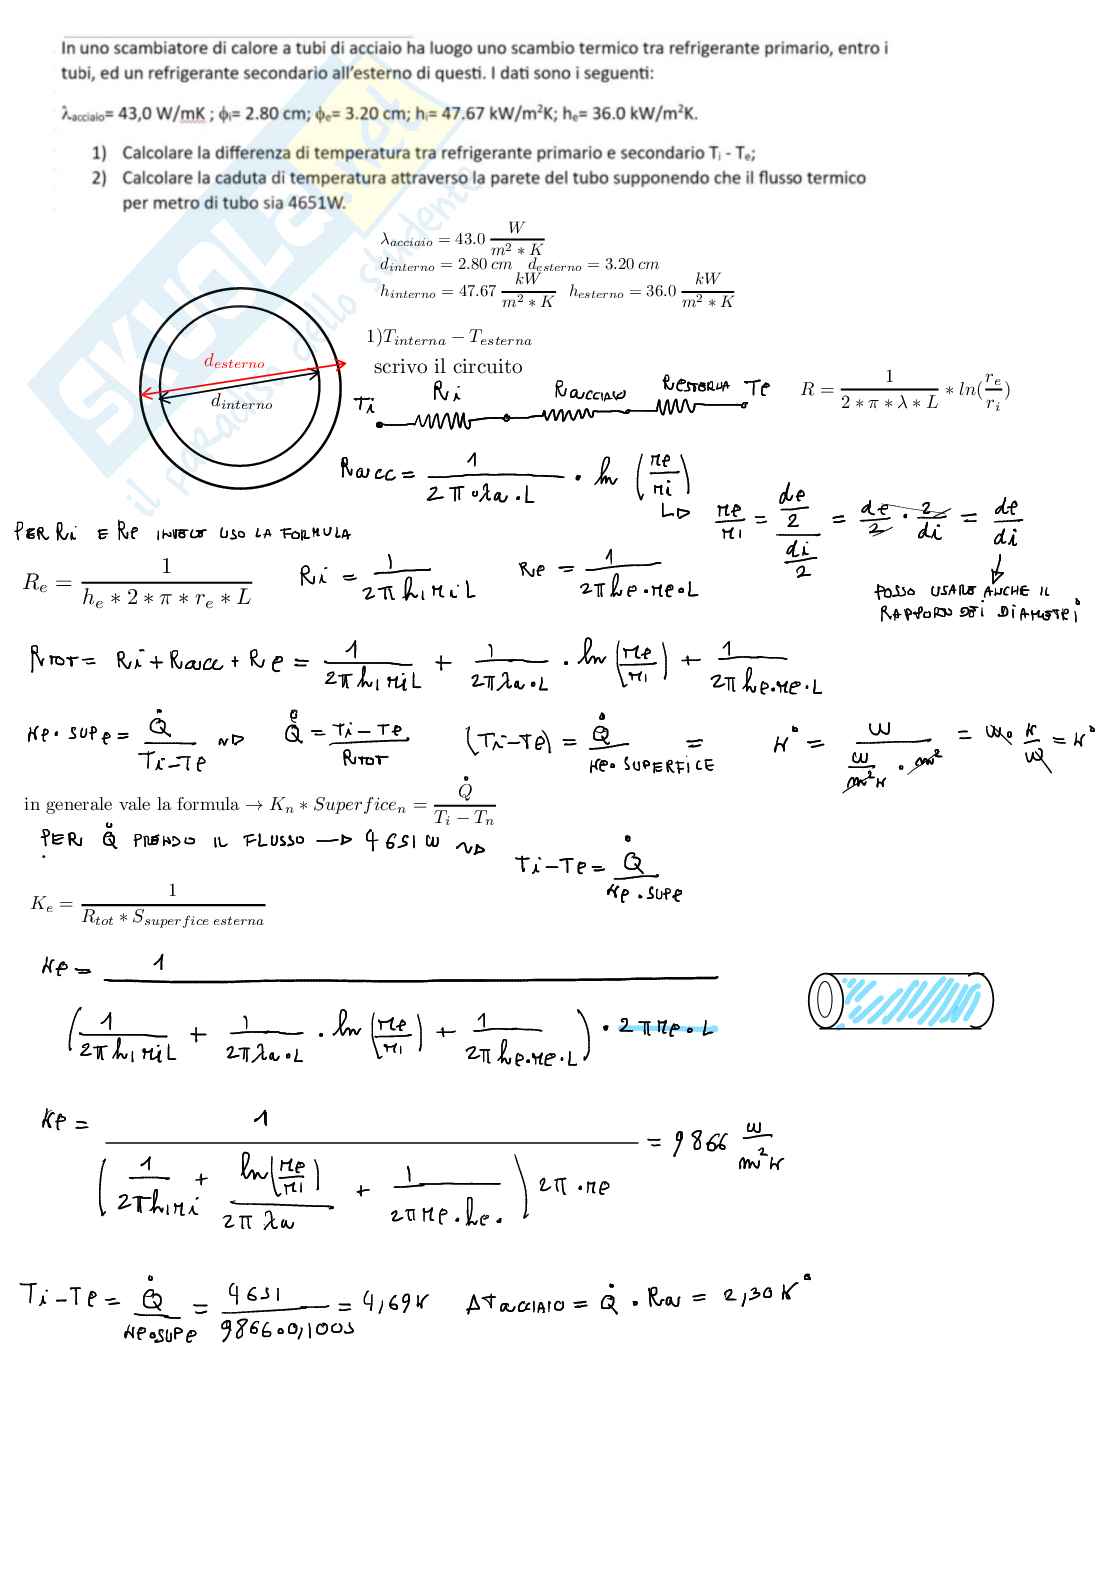 In uno scambiatore di calore a tubi di acciaio ha luogo uno scambio termico tra refrigerante primario, entro i
tubi, ed un refrigerante secondario all'esterno di questi. I dati sono i seguenti:
λacciaio= 43,0 W/mK ; ϕi= 2.80 cm; ϕe= 3.20 cm; hi= 47.67 kW/m²K; he= 36.0 kW/m²K.
1) Calcolare la differenza di temperatura tra refrigerante primario e secondario Ti - Te;
2) Calcolare la caduta di temperatura attraverso la parete del tubo supponendo che il flusso termico
per metro di tubo sia 4651W.
SKUOLA.net
il paradiso dello studente
λ_acciaio = 43.0 W / (m² * K)
d_interno = 2.80 cm d_esterno = 3.20 cm
h_interno = 47.67 kW / (m² * K) h_esterno = 36.0 kW / (m² * K)
1)T_interna − T_esterna
scrivo il circuito
d_esterno
d_interno
Ti Ri Racciaio Resterna Te
R = 1 / (2 * π * λ * L) * ln(r_e / r_i)
Racc = 1 / (2π·λa·L) · ln (re / ri)
re / ri = (de/2) / (di/2) = de/2 · 2/di = de/di
POSSO USARE ANCHE IL
RAPPORTO DEI DIAMETRI
PER Ri E Re INVECE USO LA FORMULA
R_e = 1 / (h_e * 2 * π * r_e * L) Ri = 1 / (2π hi ri L) Re = 1 / (2π he·re·L)
RTOT = Ri + Racc + Re = 1 / (2π hi ri L) + 1 / (2π λa·L) · ln (re / ri) + 1 / (2π he·re·L)
Ke·SUPe = Q̇ / (Ti−Te) ~> Q̇ = (Ti−Te) / RTOT (Ti−Te) = Q̇ / (Ke·SUPERFICE) = K° = W / (W/(m²K) · m²) = W· K/W = K°
in generale vale la formula → K_n * Superfice_n = Q̇ / (T_i − T_n)
PER Q̇ PRENDO IL FLUSSO —> 4651 W ~>
Ti−Te = Q̇ / (Ke·SUPe)
K_e = 1 / (R_tot * S_superfice esterna)
Ke = 1 / ((1 / (2π hi ri L) + 1 / (2π λa·L) · ln (re / ri) + 1 / (2π he·re·L)) · 2π re·L)
Ke = 1 / ((1 / (2π hi ri) + ln(re / ri) / (2π λa) + 1 / (2π re·he·)) 2π·re) = 9866 W / (m²K)
Ti−Te = Q̇ / (Ke·SUPe) = 4651 / (9866·0,1005) = 4,69K ΔTACCIAIO = Q̇ · Ra = 2,30 K°